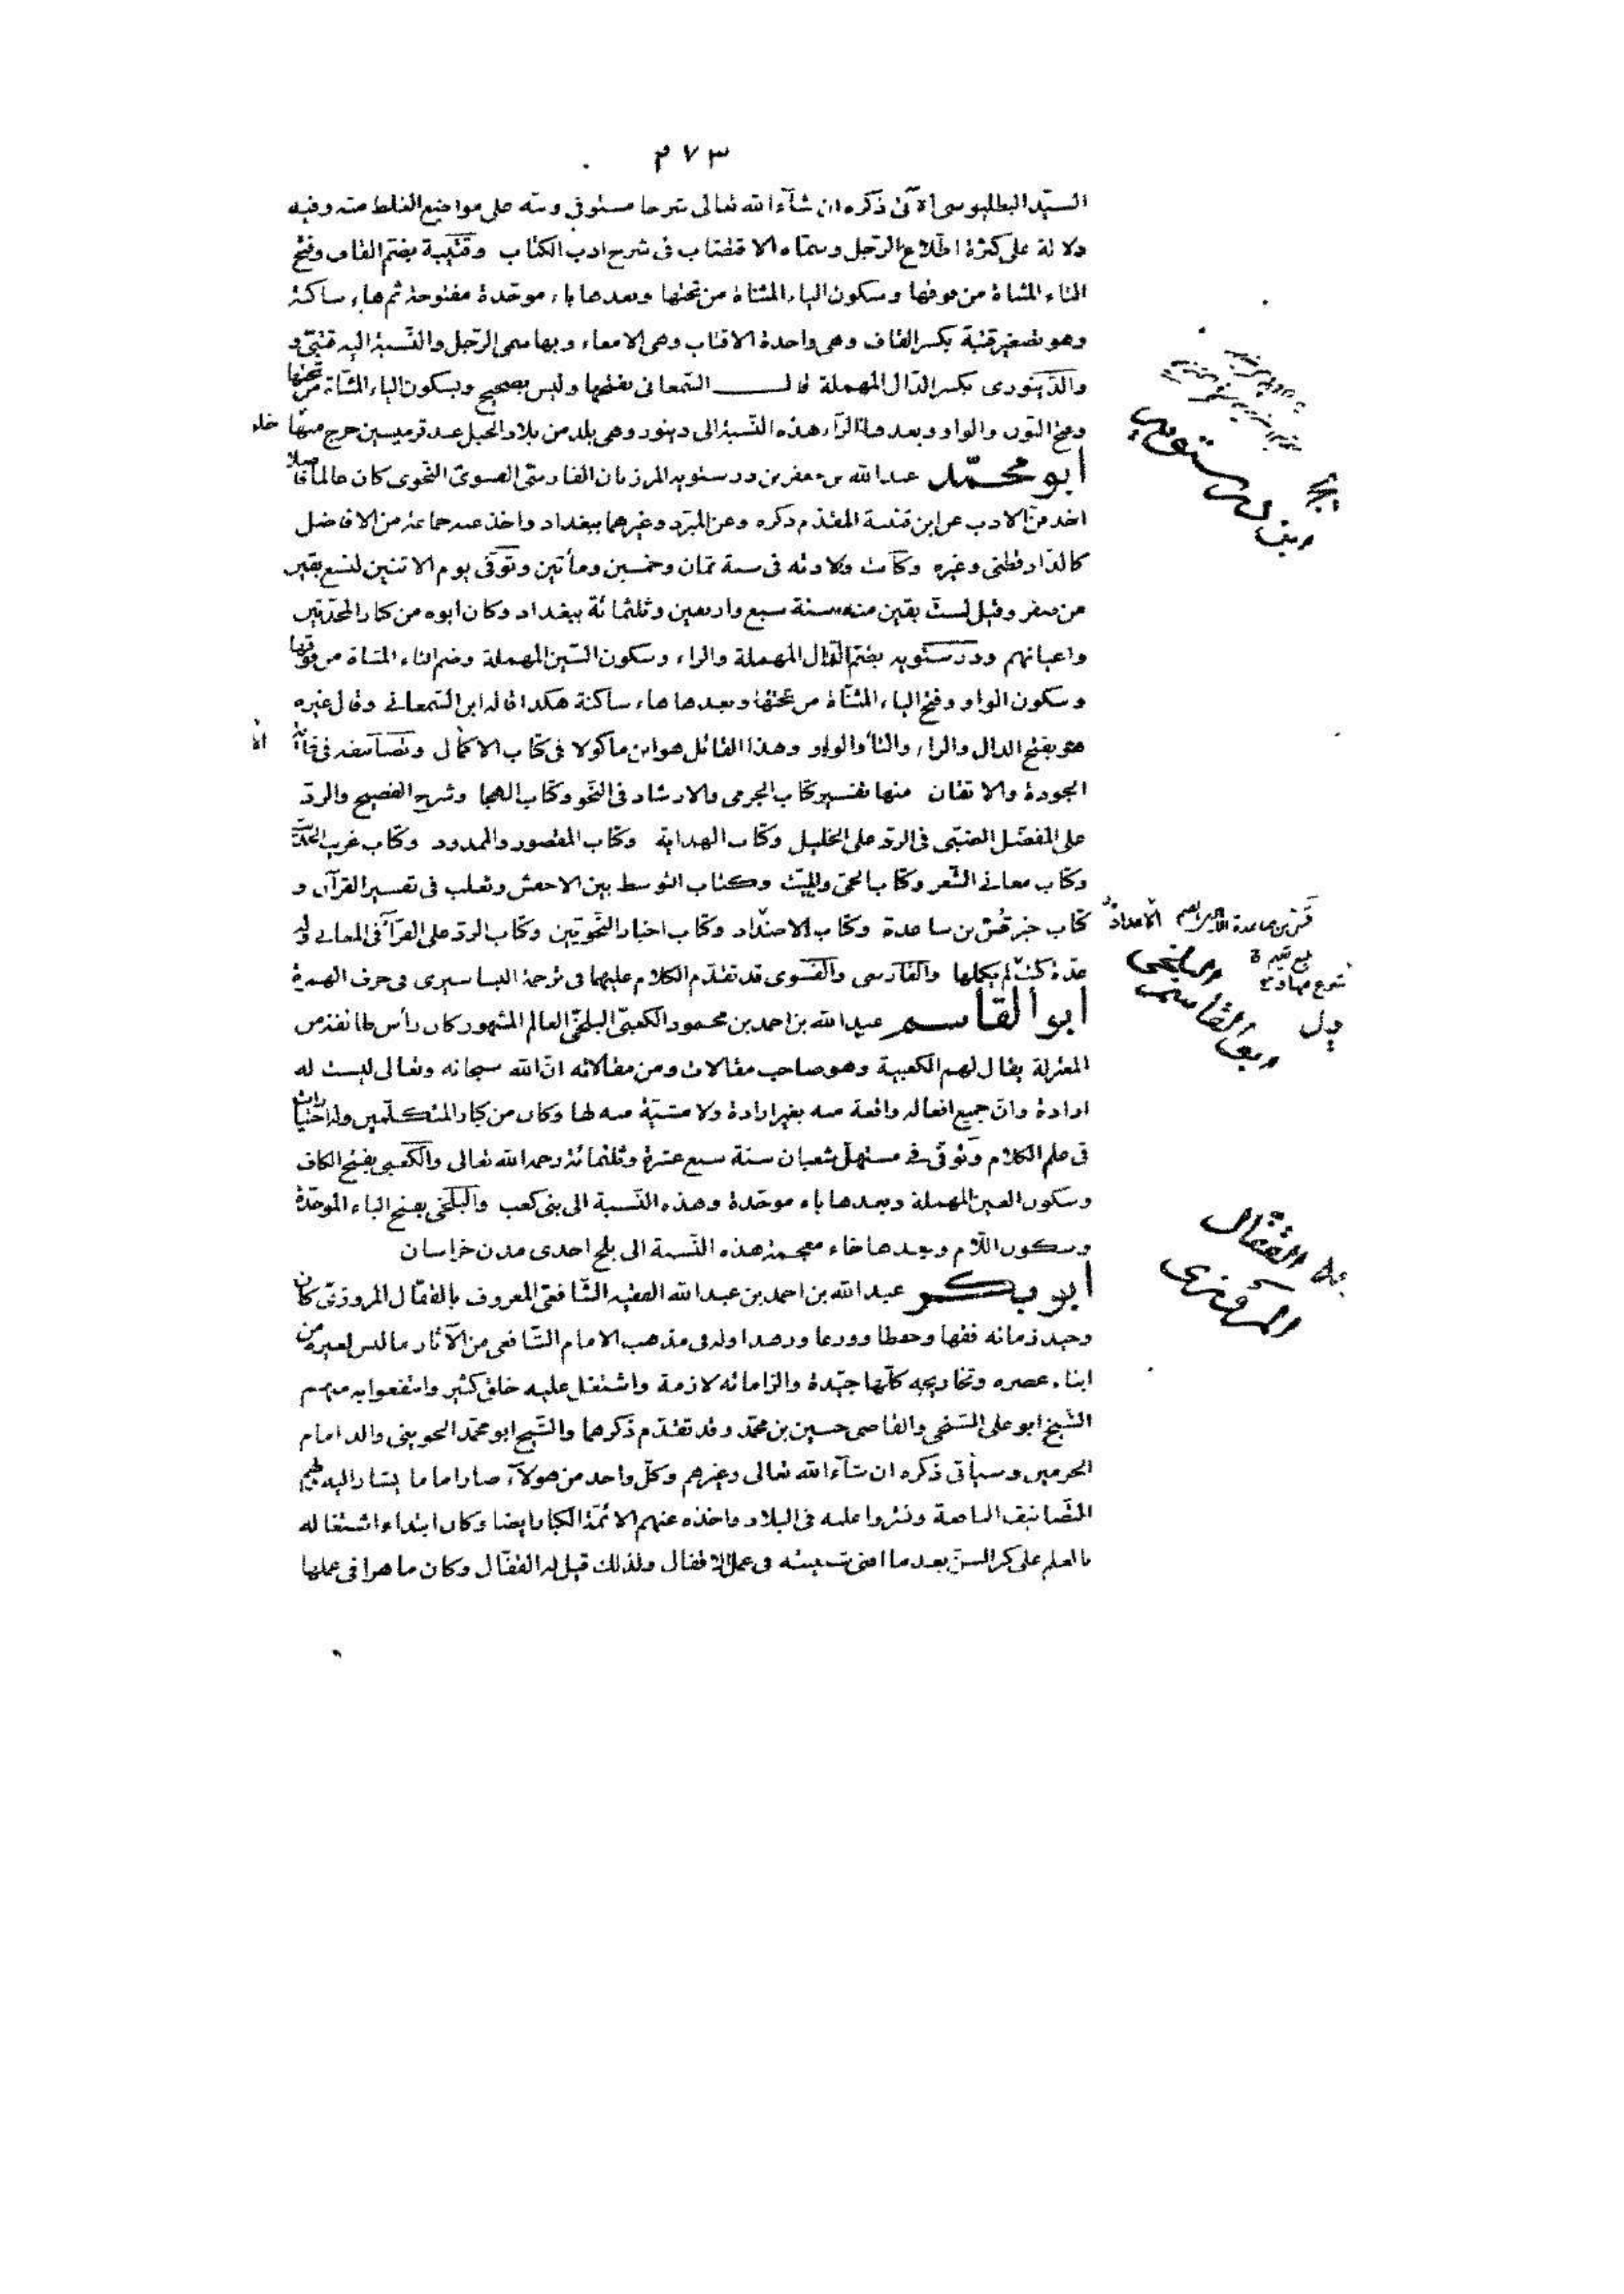 ٢٧٣
السيّد البطليوسى الآتى ذكره ان شآء الله تعالى شرحا مستوفى ونبّه على مواضع الغلط منه وفيه
دلالة على كثرة اطّلاع الرّجل وسمّاه الاقتضاب فى شرح ادب الكتاب وقتيبة بضمّ القاف وفتح
التاء المثناة من فوقها وسكون الياء المثناة من تحتها وبعدها باء موحّدة مفتوحة ثم هاء ساكنة
وهو تصغير قتبة بكسر القاف وهى واحدة الاقتاب وهى الامعاء وبها سمى الرّجل والنّسبة اليه قتبىّ و
والدّينورى بكسر الدّال المهملة قال السّمعانى بفتحها وليس بصحيح وبسكون الياء المثنّاة من تحتها
وفتح النّون والواو وبعدها الرّآء هذه النّسبة الى دينور وهى بلد من بلاد الجبل عند قرميسين خرج منها خلق
أبو محمّد عبد الله بن جعفر بن درستويه المرزبان الفارسىّ الفسوىّ النّحوى كان عالما فاضلا
اخذ فنّ الادب عن ابن قتيبة المقدّم ذكره وعن المبرّد وغيرهما ببغداد واخذ عنه جماعة من الافاضل
كالدّارقطنى وغيره وكانت ولادته فى سنة ثمان وخمسين ومأتين وتوفّى يوم الاثنين لتسع بقين
من صفر وقيل لستّ بقين منه سنة سبع واربعين وثلثمائة ببغداد وكان ابوه من كبار المحدّثين
واعيانهم ودرستويه بضمّ الدّال المهملة والراء وسكون السّين المهملة وضم التاء المثناة من فوقها
وسكون الواو وفتح الياء المثنّاة من تحتها وبعدها هاء ساكنة هكذا قاله ابن السّمعانى وقال غيره
هو بفتح الدال والراء والتاء والواو وهذا القائل هو ابن ماكولا فى كتاب الاكمال وتصانيفه فى غاية
الجودة والاتقان منها تفسير كتاب الجرمى والارشاد فى النّحو وكتاب الهجا وشرح الفصيح والردّ
على المفضّل الضبّى فى الردّ على الخليل وكتاب الهداية وكتاب المقصور والممدود وكتاب غريب الحديث
وكتاب معانى الشّعر وكتاب الحىّ والميّت وكتاب التوسط بين الاخفش وثعلب فى تفسير القرآن و
كتاب خبر قسّ بن ساعدة وكتاب الاضداد وكتاب اخبار النّحويّين وكتاب الردّ على الفرّآء فى المعانى وله
عدّة كتب لم يكملها والفارسى والفسوى قد تقدّم الكلام عليهما فى ترجمة البساسيرى فى حرف الهمزة
أبو القاسم عبد الله بن احمد بن محمود الكعبىّ البلخىّ العالم المشهور كان رأس طائفة من
المعتزلة يقال لهم الكعبية وهو صاحب مقالات ومن مقالاته انّ الله سبحانه وتعالى ليست له
ارادة وانّ جميع افعاله واقعة منه بغير ارادة ولا مشيّة منه لها وكان من كبار المتكلّمين وله اختيارات
فى علم الكلام وتوفّى فى مستهلّ شعبان سنة سبع عشرة وثلثمائة رحمه الله تعالى والكعبى بفتح الكاف
وسكون العين المهملة وبعدها باء موحّدة وهذه النّسبة الى بنى كعب والبلخى بفتح الباء الموحّدة
وسكون اللّام وبعدها خاء معجمة هذه النّسبة الى بلخ احدى مدن خراسان
أبو بكر عبد الله بن احمد بن عبد الله الفقيه الشّافعىّ المعروف بالقفّال المروزىّ كان
وحيد زمانه فقها وحفظا وورعا وزهدا وله فى مذهب الامام الشّافعى من الآثار ما ليس لغيره من
ابناء عصره وتخاريجه كلّها جيّدة والزاماته لازمة واشتغل عليه خلق كثير وانتفعوا به منهم
الشّيخ ابو على السّنجى والقاضى حسين بن محمّد وقد تقدّم ذكرهما والشّيخ ابو محمّد الجوينى والد امام
الحرمين وسيأتى ذكره ان شآء الله تعالى وغيرهم وكلّ واحد من هولآء صار اماما يشار اليه ولهم
التّصانيف النافعة ونشروا علمه فى البلاد واخذه عنهم الائمّة الكبار ايضا وكان ابتداء اشتغاله
بالعلم على كبر السنّ بعد ما افنى شبيبته فى عمل الاقفال ولذلك قيل له القفّال وكان ماهرا فى عملها
ابن درستويه
البلخى
ابو القاسم
القفّال
المروزى